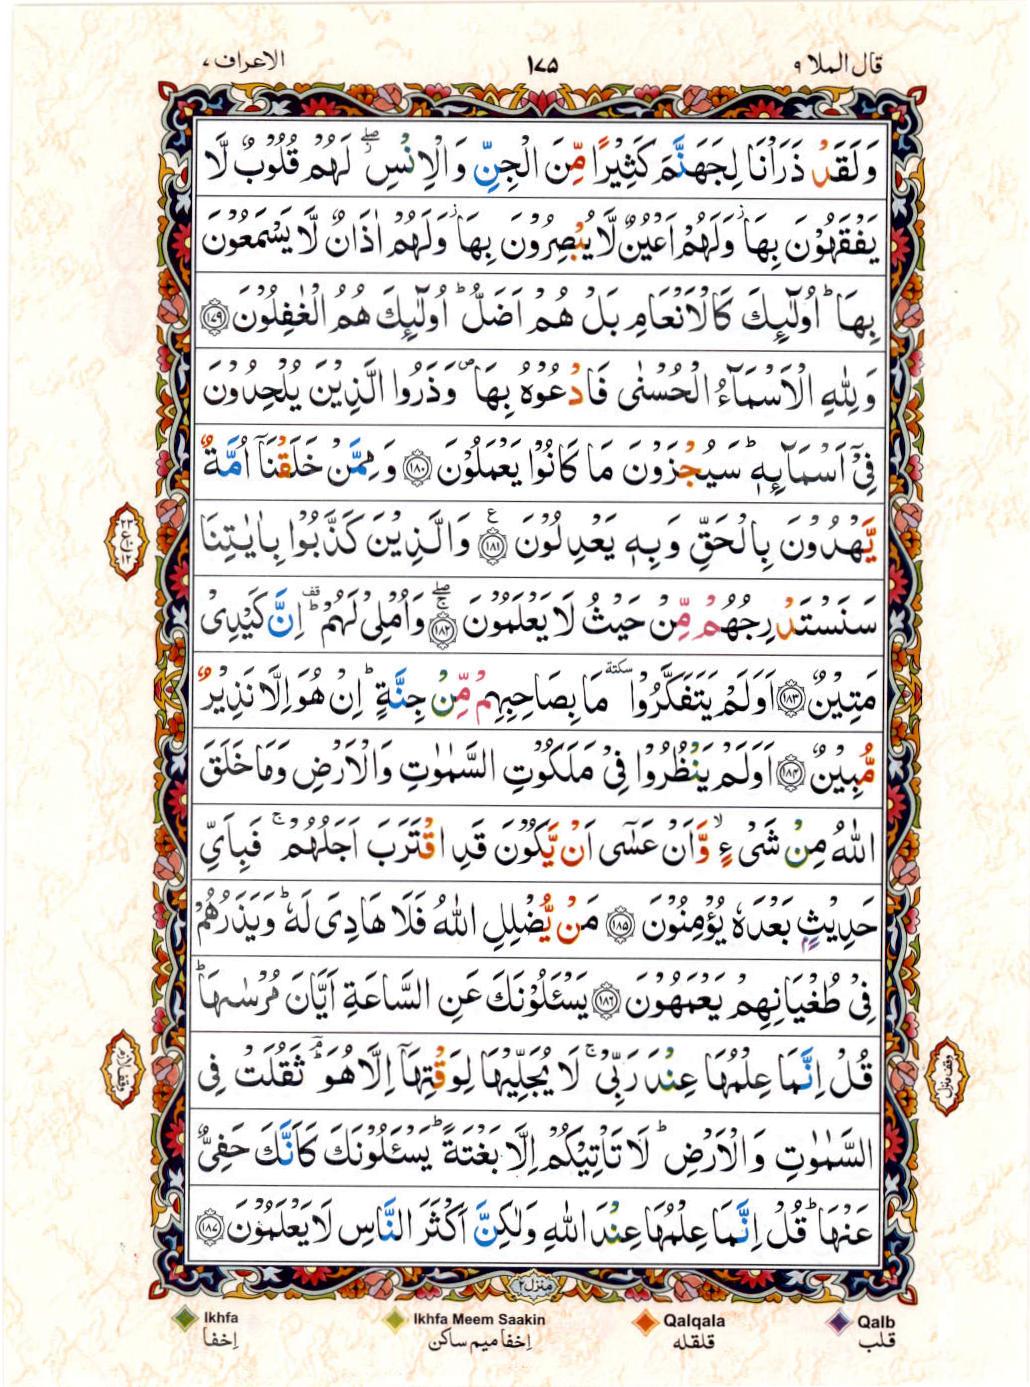 قال الملا ۹
۱۷۵
الاعراف ۷
وَلَقَدْ ذَرَاْنَا لِجَهَنَّمَ كَثِيْرًا مِّنَ الْجِنِّ وَالْاِنْسِ ۖ لَهُمْ قُلُوْبٌ لَّا
يَفْقَهُوْنَ بِهَا ۫ وَلَهُمْ اَعْيُنٌ لَّا يُبْصِرُوْنَ بِهَا ۫ وَلَهُمْ اٰذَانٌ لَّا يَسْمَعُوْنَ
بِهَا ؕ اُولٰٓئِكَ كَالْاَنْعَامِ بَلْ هُمْ اَضَلُّ ؕ اُولٰٓئِكَ هُمُ الْغٰفِلُوْنَ ۝۱۷۹
وَلِلّٰهِ الْاَسْمَآءُ الْحُسْنٰى فَادْعُوْهُ بِهَا ۪ وَذَرُوا الَّذِيْنَ يُلْحِدُوْنَ
فِيْۤ اَسْمَآئِهٖ ؕ سَيُجْزَوْنَ مَا كَانُوْا يَعْمَلُوْنَ ۝۱۸۰ وَمِمَّنْ خَلَقْنَاۤ اُمَّةٌ
يَّهْدُوْنَ بِالْحَقِّ وَبِهٖ يَعْدِلُوْنَ ۝۱۸۱ ع وَالَّذِيْنَ كَذَّبُوْا بِاٰيٰتِنَا
سَنَسْتَدْرِجُهُمْ مِّنْ حَيْثُ لَا يَعْلَمُوْنَ ۝۱۸۲ ۖۚ وَاُمْلِيْ لَهُمْ ؕ قف اِنَّ كَيْدِيْ
مَتِيْنٌ ۝۱۸۳ اَوَلَمْ يَتَفَكَّرُوْا سكتة مَا بِصَاحِبِهِمْ مِّنْ جِنَّةٍ ؕ اِنْ هُوَ اِلَّا نَذِيْرٌ
مُّبِيْنٌ ۝۱۸۴ اَوَلَمْ يَنْظُرُوْا فِيْ مَلَكُوْتِ السَّمٰوٰتِ وَالْاَرْضِ وَمَا خَلَقَ
اللّٰهُ مِنْ شَيْءٍ ۙ وَّاَنْ عَسٰٓى اَنْ يَّكُوْنَ قَدِ اقْتَرَبَ اَجَلُهُمْ ۚ فَبِاَيِّ
حَدِيْثٍۭ بَعْدَهٗ يُؤْمِنُوْنَ ۝۱۸۵ مَنْ يُّضْلِلِ اللّٰهُ فَلَا هَادِيَ لَهٗ ؕ وَيَذَرُهُمْ
فِيْ طُغْيَانِهِمْ يَعْمَهُوْنَ ۝۱۸۶ يَسْئَلُوْنَكَ عَنِ السَّاعَةِ اَيَّانَ مُرْسٰىهَا ؕ
قُلْ اِنَّمَا عِلْمُهَا عِنْدَ رَبِّيْ ۚ لَا يُجَلِّيْهَا لِوَقْتِهَاۤ اِلَّا هُوَ ؔ ؕ ثَقُلَتْ فِي
السَّمٰوٰتِ وَالْاَرْضِ ؕ لَا تَاْتِيْكُمْ اِلَّا بَغْتَةً ؕ يَسْئَلُوْنَكَ كَاَنَّكَ حَفِيٌّ
عَنْهَا ؕ قُلْ اِنَّمَا عِلْمُهَا عِنْدَ اللّٰهِ وَلٰكِنَّ اَكْثَرَ النَّاسِ لَا يَعْلَمُوْنَ ۝۱۸۷
وقف منزل
وقف لازم
منزل ۲
Ikhfa
اِخفا
Ikhfa Meem Saakin
اِخفا میم ساکن
Qalqala
قلقله
Qalb
قلب